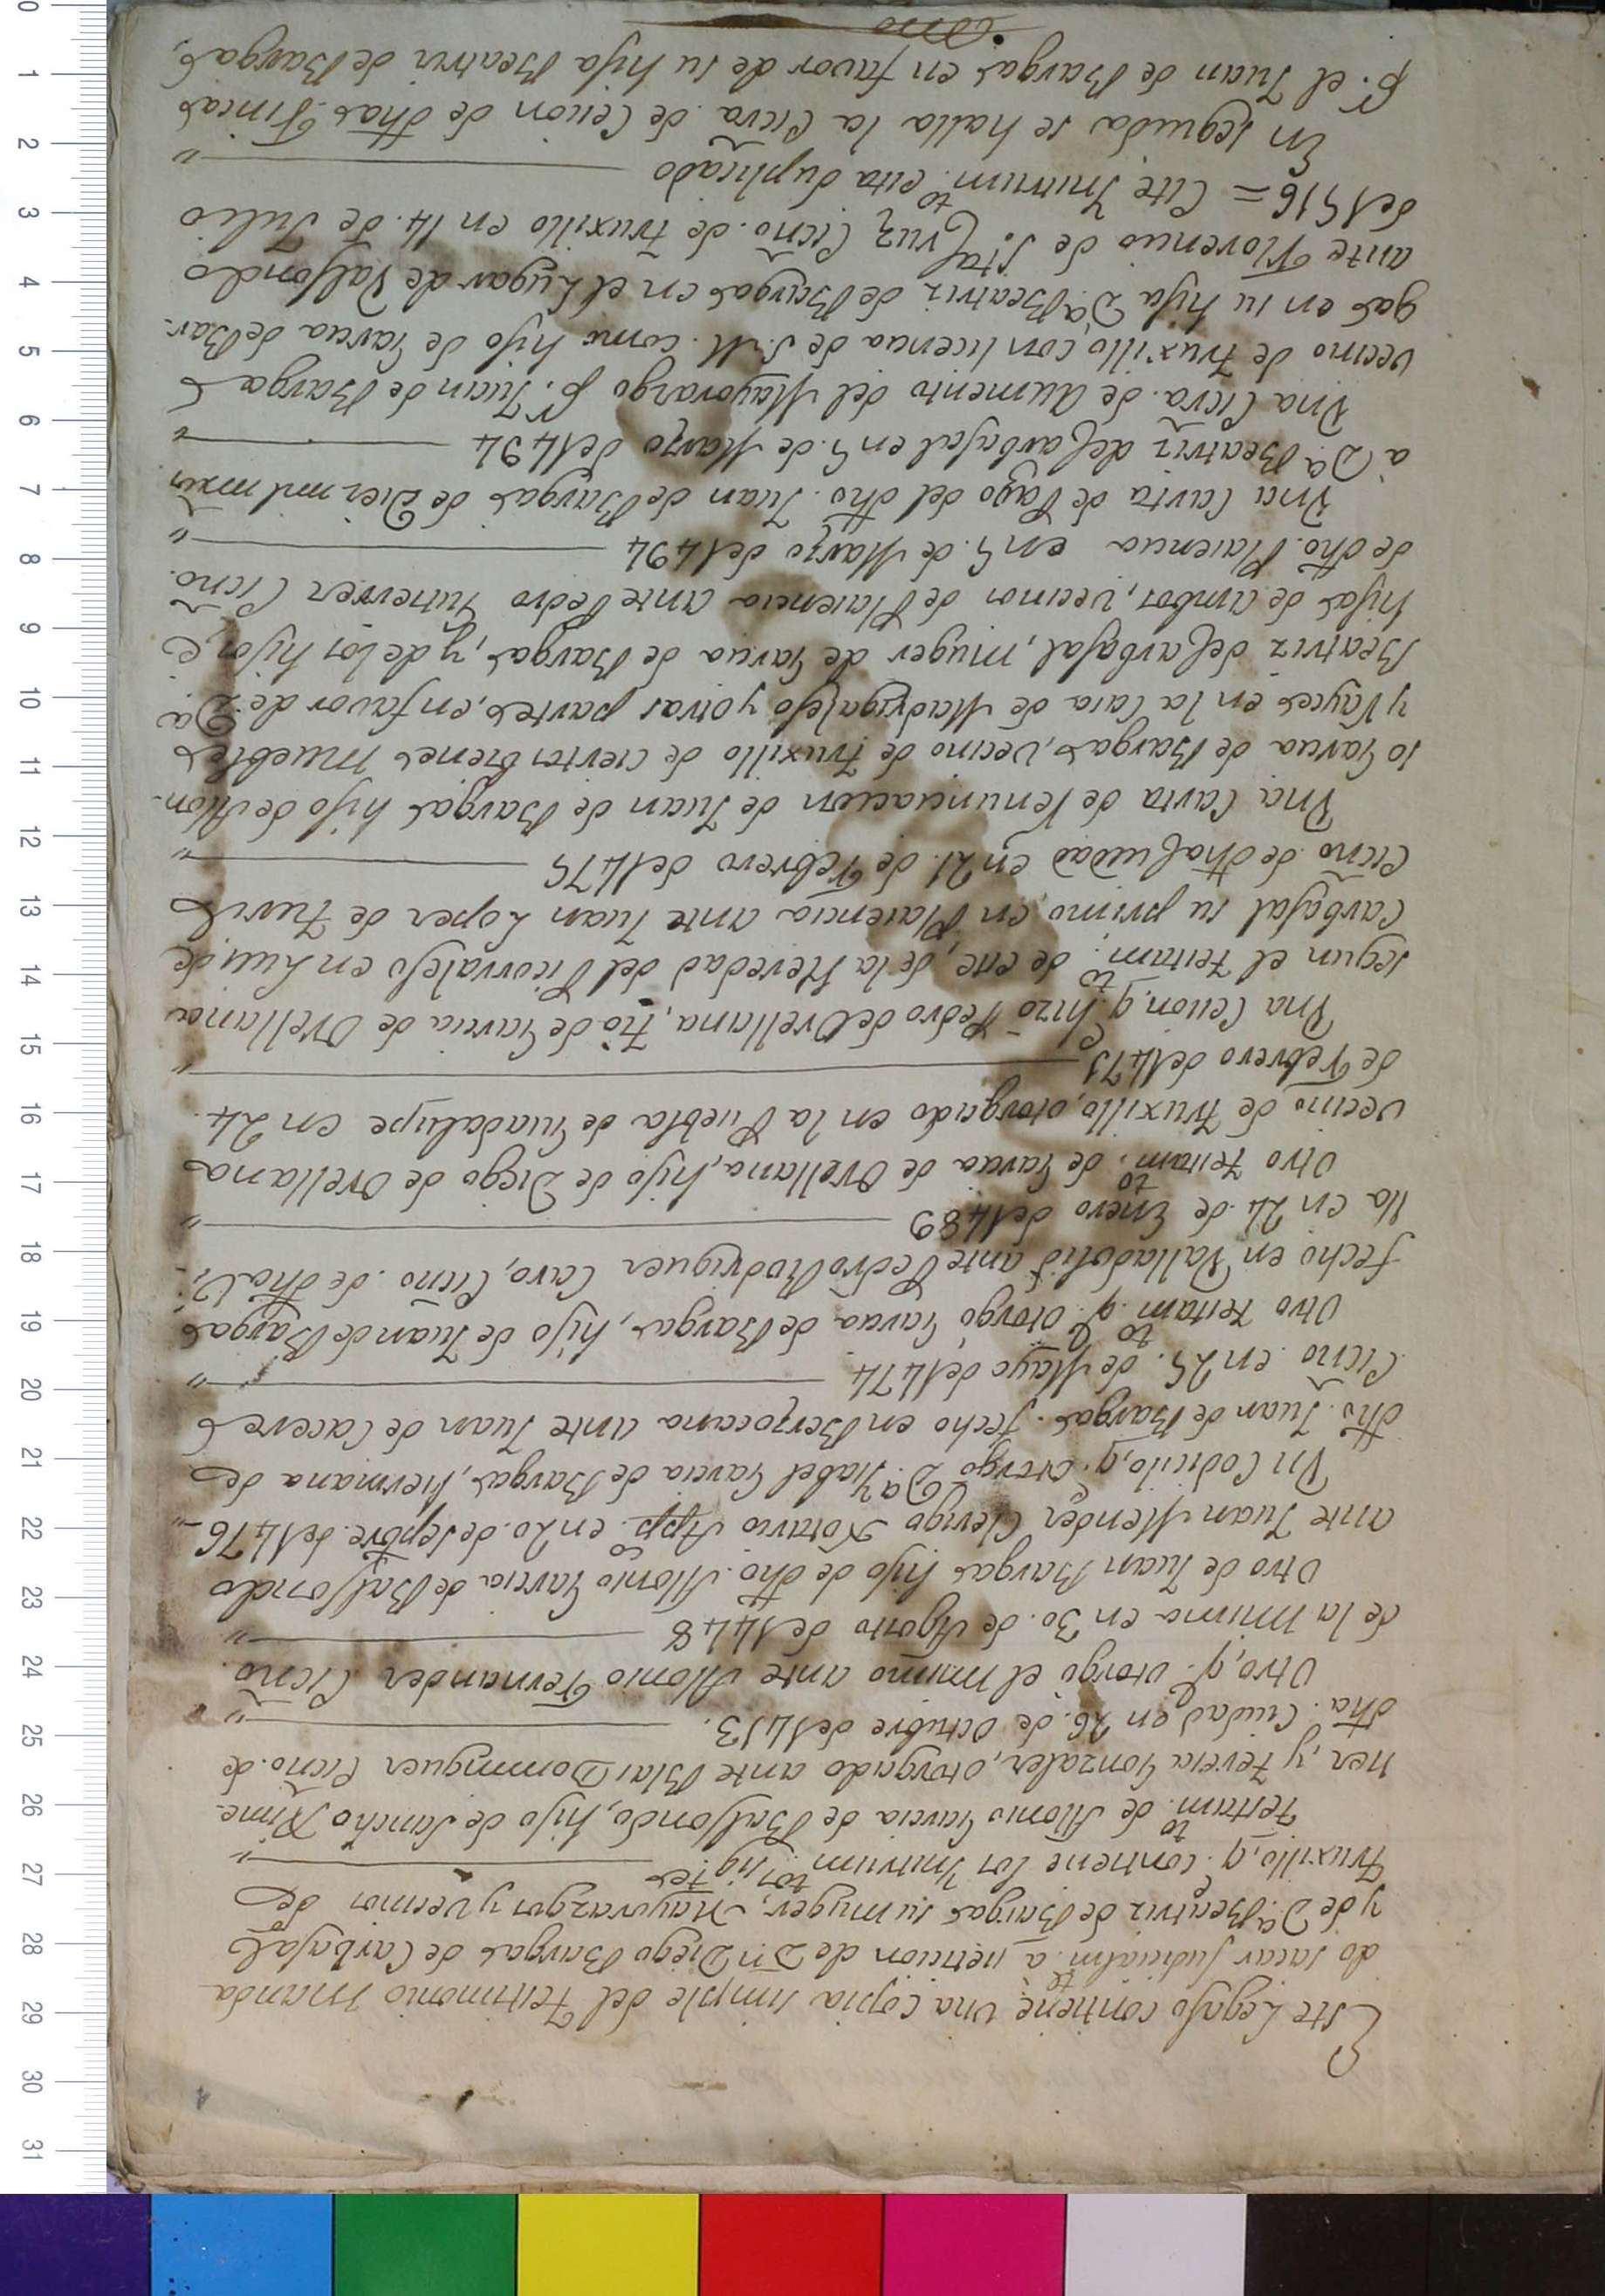 Este Legajo contiene una Copia simple del Testimonio manda
do sacar judicialm.te à peticion de Dn Diego Bargas de Carbajal
y de D.ª Beatriz de Bargas su muger, Mayorazgos y Vecinos de
Truxillo, q.e contiene los Instrum.tos sig.tes
Testam.to de Alonso Garcia de Balfondo, hijo de Sancho Xime-
nez, y Teresa Gonzalez, otorgado ante Blas Dominguez Escño. de
dha. Ciudad en 26. de Octubre de 1413.
Otro, q.e otorgó el mismo ante Alonso Fernandez Escño.
de la misma en 30. de Agosto de 1448
Otro de Juan Bargas hijo de dho. Alonso Garcia de Balfondo
ante Juan Mendez Clerigo Notario App.co en 20. de Sepbre. de 1476
Un Codicilo, q.e otorgó D.ª Ysabel Garcia de Bargas, hermana de
dho. Juan de Bargas. fecho en Berzocana ante Juan de Caceres
Escño. en 25. de Mayo de 1474
Otro testam.to q.e otorgó Garcia de Bargas, hijo de Juan de Bargas
fecho en Valladolid ante Pedro Rodriguez Caro, Escño. de dha Vi-
lla en 24. de Enero de 1489
Otro Testam.to de Garcia de Orellana, hijo de Diego de Orellana
vecino de Truxillo, otorgado en la Puebla de Guadalupe en 24
de Febrero de 1471
Una Cesion, q.e hizo Pedro de Orellana, tio de Garcia de Orellana
segun el testam.to de este, de la Heredad del Picorralejo en Luis de
Carbajal su primo, en Plasencia ante Juan Lopez de Turiel
Escño. de dha Ciudad en 21. de Febrero de 1475
Una Carta de renunciacion de Juan de Bargas hijo de Alon-
so Garcia de Bargas, vecino de Truxillo de ciertos bienes muebles
y rayces en la Casa de Madrigalejo y otras partes, en favor de D.ª
Beatriz de Carbajal, muger de Garcia de Bargas, y de los hijos, e
hijas de ambos, vecinos de Plasencia ante Pedro Gutierrez Escño.
de dho. Plasencia en 5. de Marzo de 1494
Una Carta de Pago del dho. Juan de Bargas de Diez mil mrs
à D.ª Beatriz de Carbajal en 5. de Marzo de 1494
Una Escra. de Aumento del Mayorazgo p.r Juan de Bargas
vecino de Truxillo, con licencia de S.M. como hijo de Garcia de Bar-
gas en su hija D.ª Beatriz de Bargas en el Lugar de Valfondo
ante Florencio de S.ta Cruz Escño. de Truxillo en 14. de Julio
de 1516 = Este Instrum.to esta duplicado
En seguida se halla la Escra. de Cesion de dhas Fincas
p.r el Juan de Bargas en favor de su hija Beatriz de Bargas